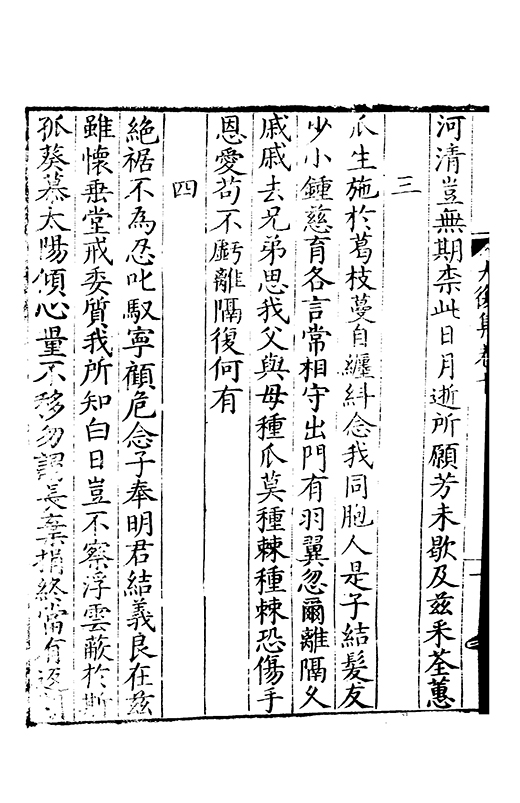 河清豈無期柰此日月逝所願芳未歇及兹采荃蕙
三
瓜生施於葛枝蔓自纏糾念我同胞人是子結髮友
少小鍾慈育各言常相守出門有羽翼忽爾離隔久
戚戚去兄弟思我父與母種瓜莫種棘種棘恐傷手
恩愛苟不虧離隔復何有
四
絶裾不為忍叱馭寧顧危念子奉明君結義良在兹
雖懷垂堂戒委質我所知白日豈不察浮雲蔽於斯
孤葵慕太陽傾心量不移勿謂長棄捐終當有返
大復集卷十